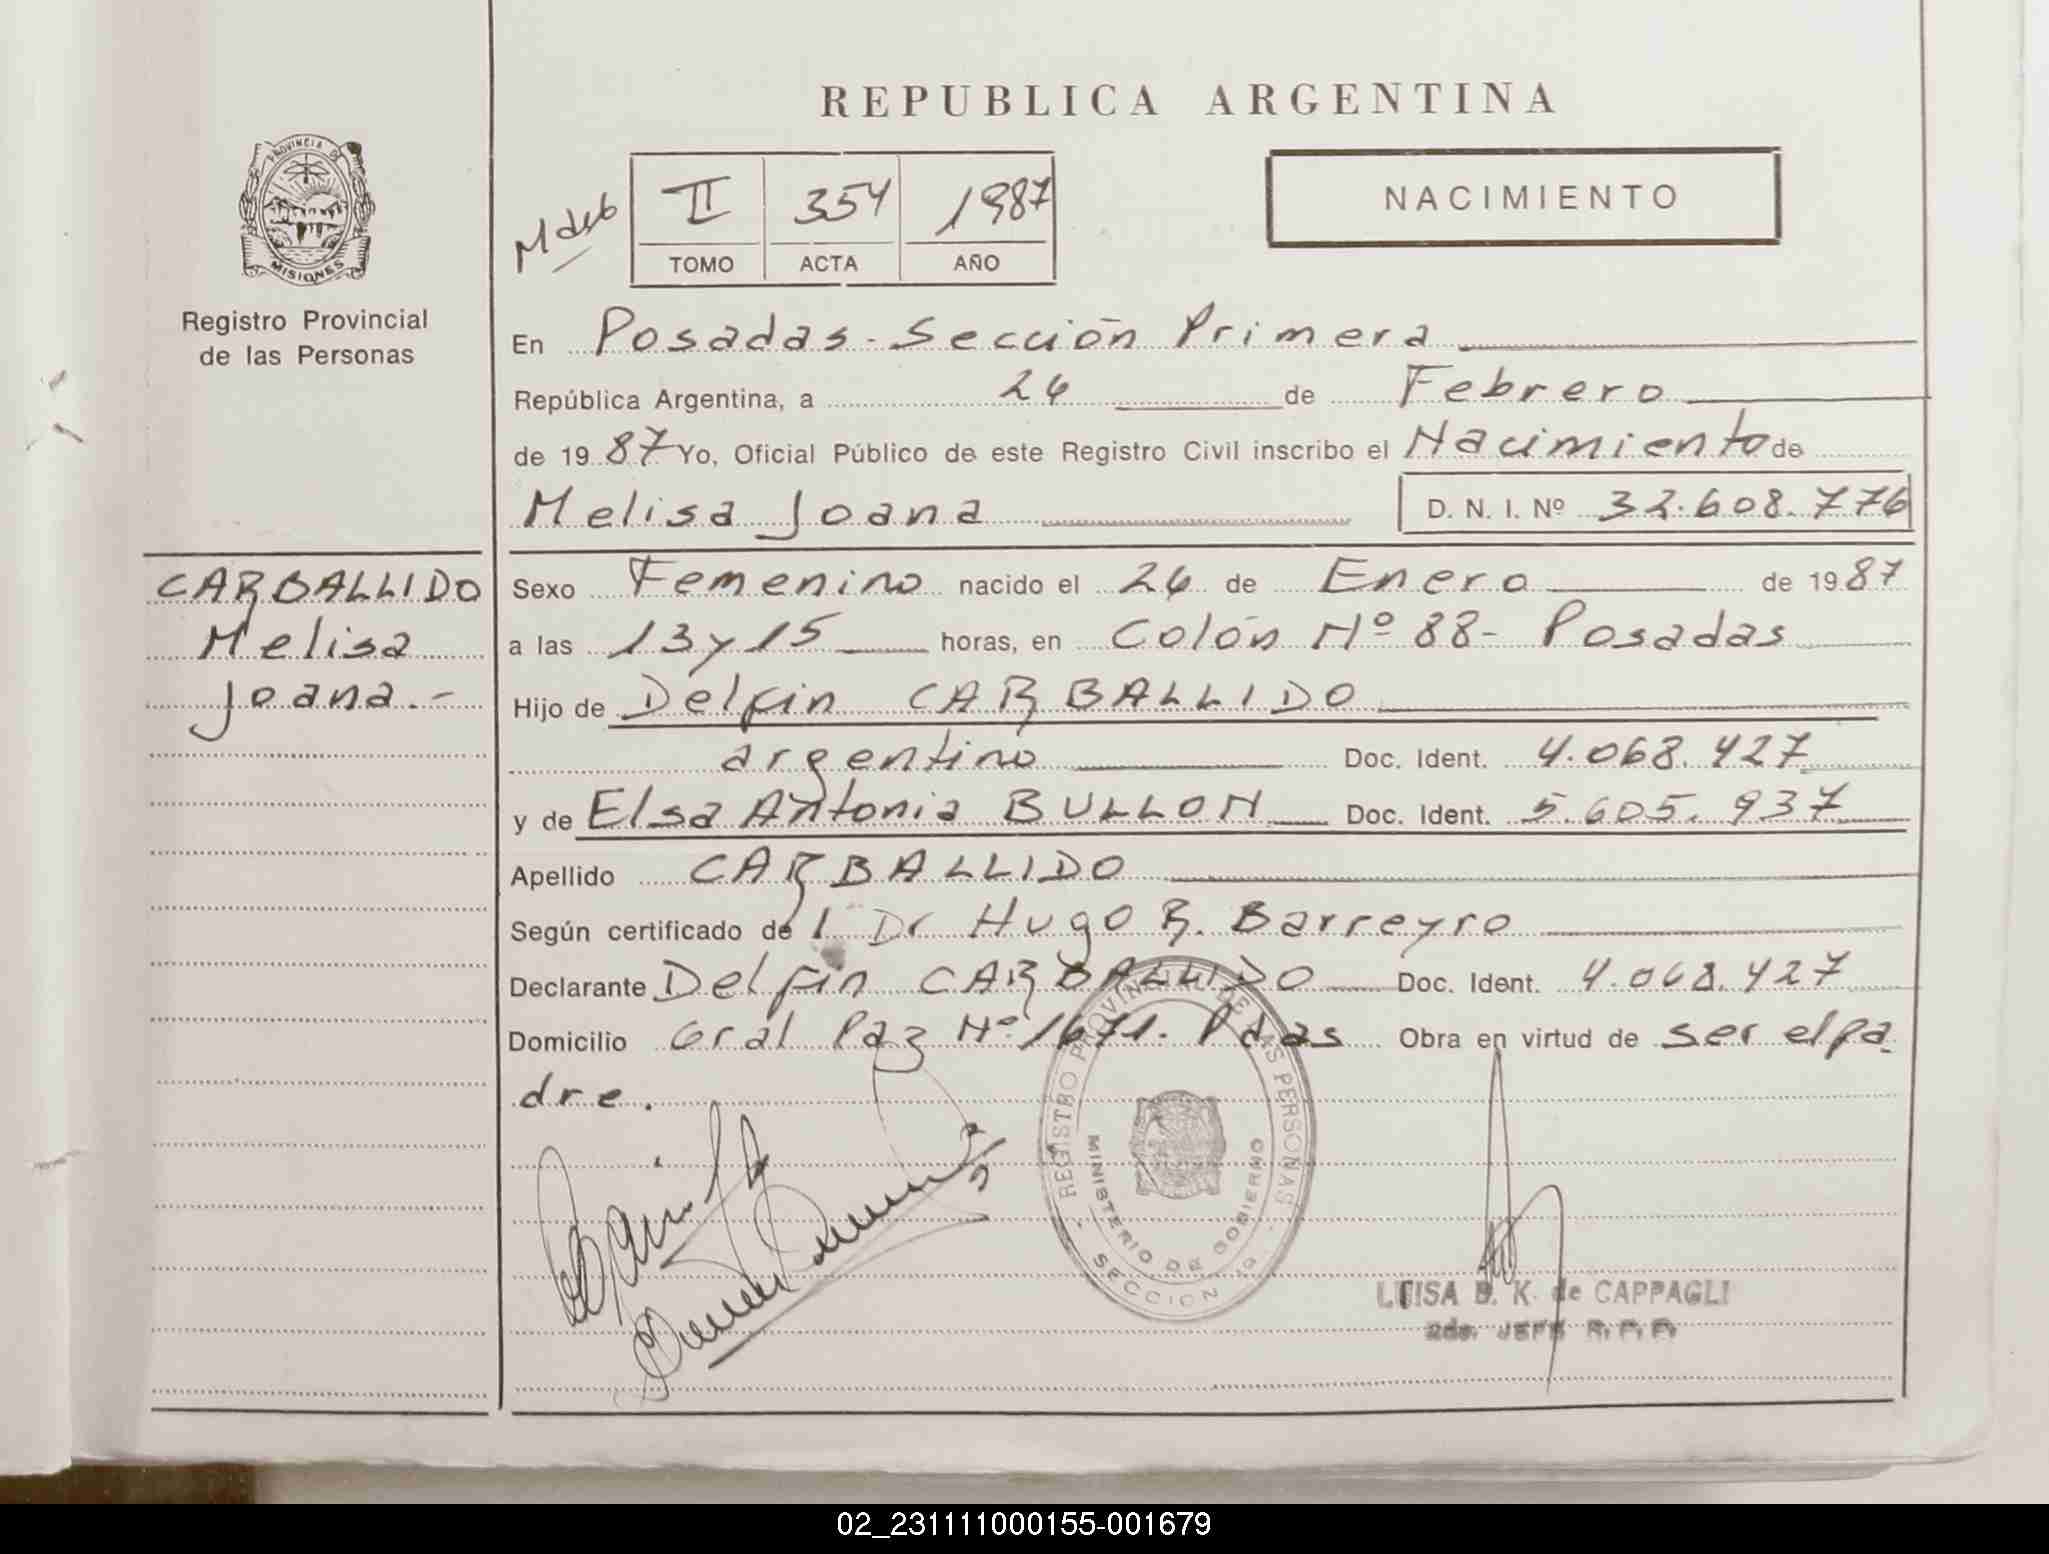 REPUBLICA ARGENTINA
PROVINCIA DE
MISIONES
Registro Provincial
de las Personas
II 354 1987
TOMO ACTA AÑO
NACIMIENTO
En Posadas - Sección Primera
República Argentina, a 26 de Febrero
de 1987 Yo, Oficial Público de este Registro Civil inscribo el Nacimiento de
Melisa Joana D. N. I. Nº 32.608.776
CARBALLIDO
Melisa
Joana.-
Sexo Femenino nacido el 26 de Enero de 1987
a las 13 y 15 horas, en Colón Nº 88- Posadas
Hijo de Delfin CARBALLIDO
argentino Doc. Ident. 4.068.427
y de Elsa Antonia BULLON Doc. Ident. 5.605.937
Apellido CARBALLIDO
Según certificado del Dr Hugo R. Barreyro
Declarante Delfin CARBALLIDO Doc. Ident. 4.068.427
Domicilio Gral Paz Nº 1671. Pdas Obra en virtud de ser el pa
dre.
REGISTRO PROVINCIAL DE LAS PERSONAS
MINISTERIO DE GOBIERNO
SECCION 1a
LUISA B. K. de CAPPAGLI
2do. JEFE R. P. P.
02_231111000155-001679